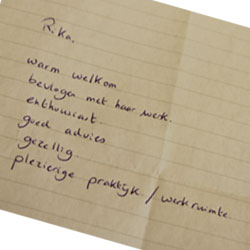 Rika.
warm welkom
bevlogen met haar werk.
enthousiast.
goed advies
gezellig.
plezierige praktijk / werkruimte.